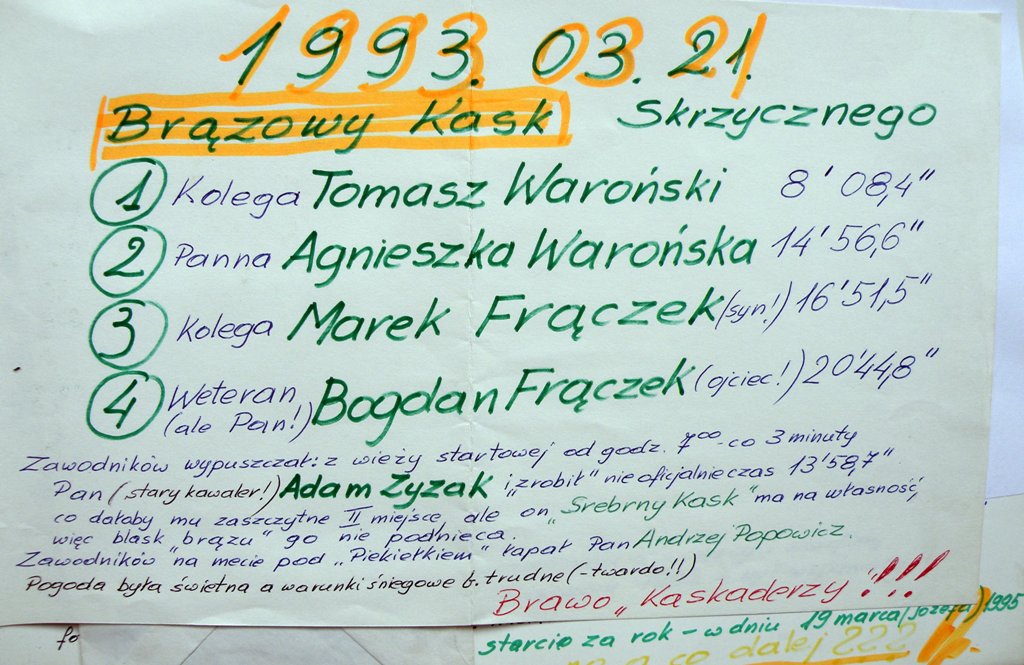 1993.03.21.
Brązowy Kask Skrzycznego
1 Kolega Tomasz Waroński 8'08,4"
2 Panna Agnieszka Warońska 14'56,6"
3 Kolega Marek Frączek (syn!) 16'51,5"
4 Weteran (ale Pan!) Bogdan Frączek (ojciec!) 20'44,8"
Zawodników wypuszczał: z wieży startowej od godz. 7⁰⁰-co 3 minuty
Pan (stary kawaler!) Adam Zyzak i „zrobił" nieoficjalnie czas 13'58,7"
co dałoby mu zaszczytne II miejsce, ale on „Srebrny Kask" ma na własność,
więc blask „brązu" go nie podnieca.
Zawodników na mecie pod „Piekiełkiem" łapał Pan Andrzej Popowicz.
Pogoda była świetna a warunki śniegowe b. trudne (-twardo!!)
Brawo „Kaskaderzy !!!!
starcie za rok - w dniu 19 marca (Józefa) 1995
a co dalej ???
fo